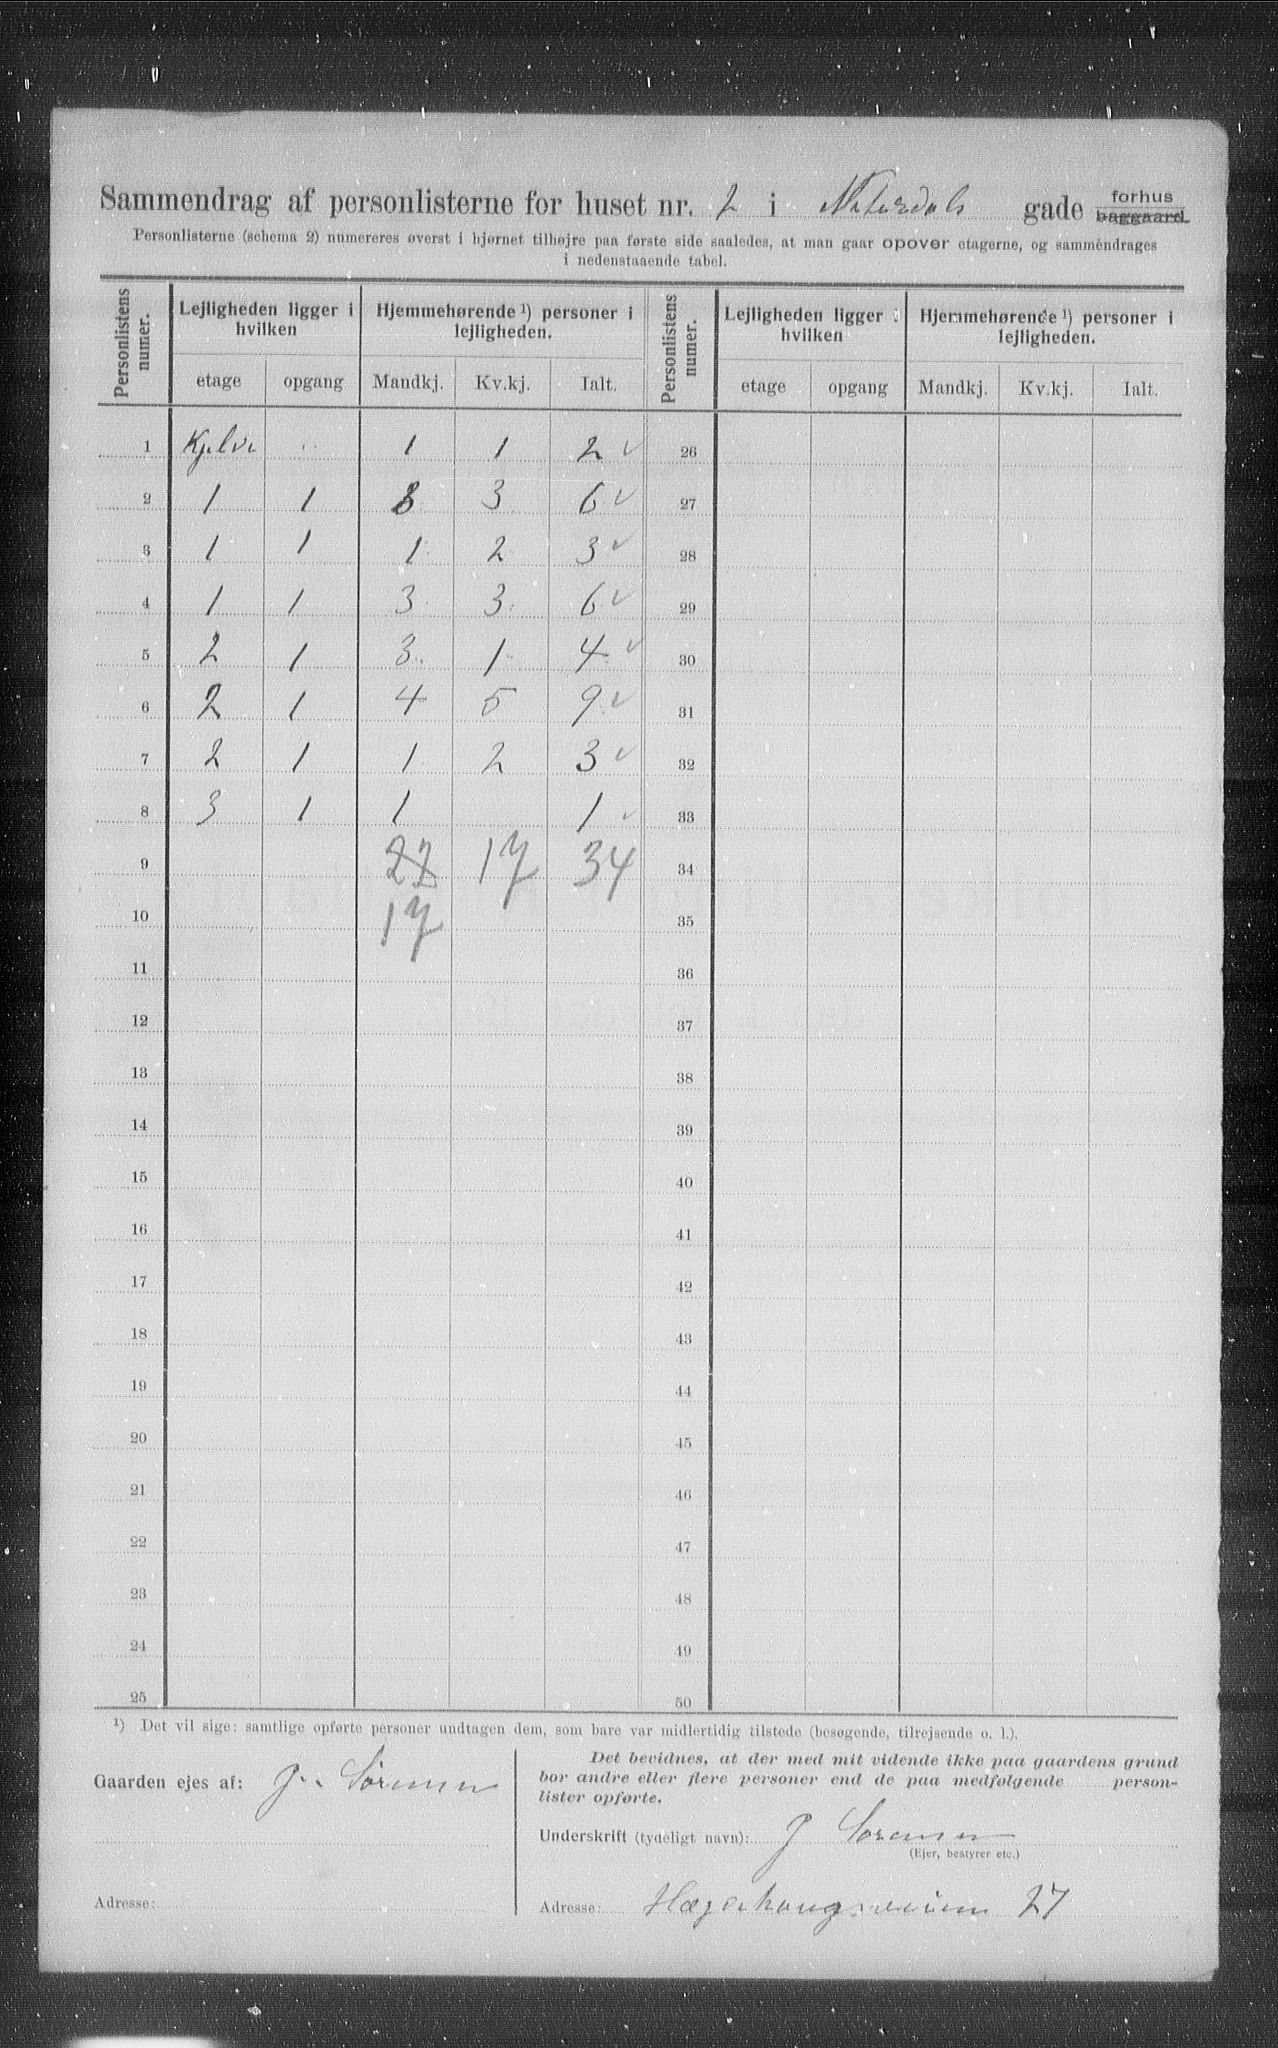 Sammendrag af personlisterne for huset nr. 2 i gade forhus
baggaard.
Personlisterne (schema 2) numereres øverst i hjørnet tilhøjre paa første side saaledes, at man gaar opover etagerne, og sammendrages
i nedenstaaende tabel.
Personlistens numer. Lejligheden ligger i hvilken Hjemmehørende ¹) personer i lejligheden. Personlistens numer. Lejligheden ligger i hvilken Hjemmehørende ¹) personer i lejligheden.
etage opgang Mandkj. Kv.kj. Ialt. etage opgang Mandkj. Kv.kj. Ialt.
1 1 1 2 ✓ 26
2 1 1 3 3 6 ✓ 27
3 1 1 1 2 3 ✓ 28
4 1 1 3 3 6 ✓ 29
5 2 1 3 1 4 ✓ 30
6 2 1 4 5 9 ✓ 31
7 2 1 1 2 3 ✓ 32
8 3 1 1 1 ✓ 33
9 22 17 34 34
10 17 35
11 36
12 37
13 38
14 39
15 40
16 41
17 42
18 43
19 44
20 45
21 46
22 47
23 48
24 49
25 50
¹) Det vil sige: samtlige opførte personer undtagen dem, som bare var midlertidig tilstede (besøgende, tilrejsende o. l.).
Gaarden ejes af: J. Sørensen
Adresse:
Det bevidnes, at der med mit vidende ikke paa gaardens grund
bor andre eller flere personer end de paa medfølgende person-
lister opførte.
Underskrift (tydeligt navn): J Sørensen
(Ejer, bestyrer etc.)
Adresse: Hægdehaugsveien 27